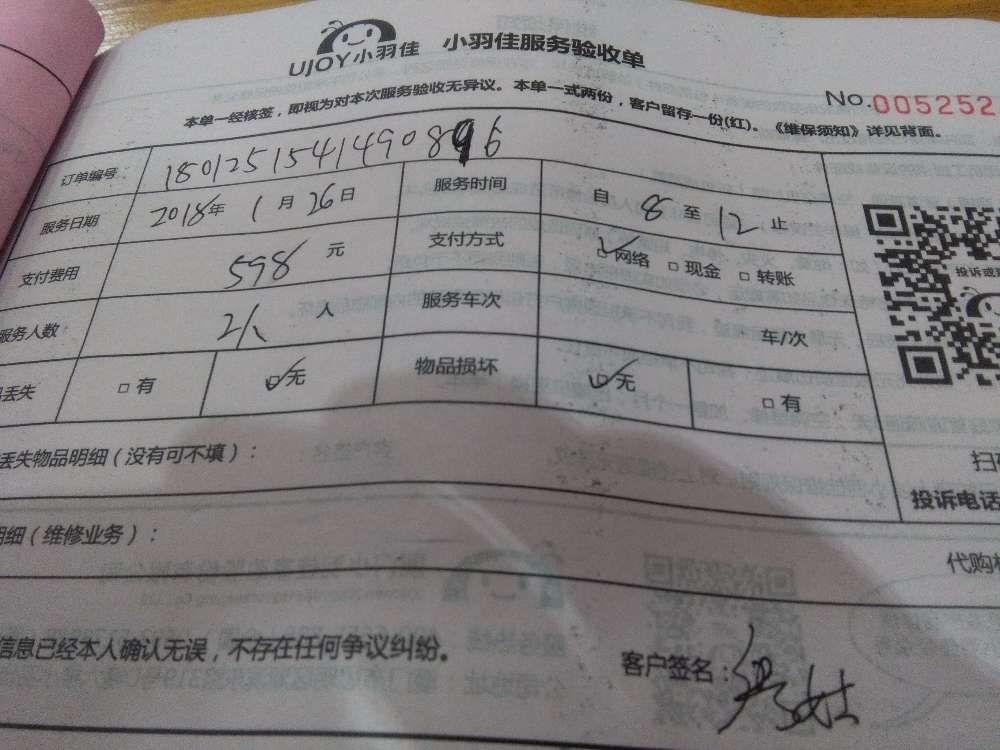 UJOY小羽佳 小羽佳服务验收单
No.005252
本单一经核签，即视为对本次服务验收无异议。本单一式两份，客户留存一份(红)。《维保须知》详见背面。
订单编号
服务日期 2018年 1月26日 服务时间 自 8 至 12 止
支付费用 598 元 支付方式 ☑网络 □现金 □转账
服务人数 2人 人 服务车次 车/次
丢失 □有 ☑无 物品损坏 ☑无 □有
投诉或
丢失物品明细（没有可不填）：
扫
投诉电话
明细（维修业务）：
代购
信息已经本人确认无误，不存在任何争议纠纷。
客户签名：